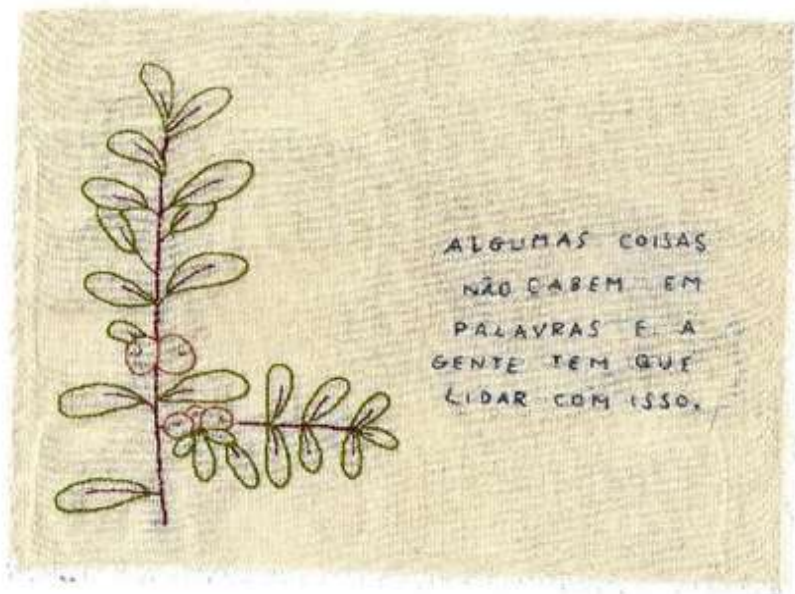 ALGUMAS COISAS
NÃO CABEM EM
PALAVRAS E A
GENTE TEM QUE
LIDAR COM ISSO.